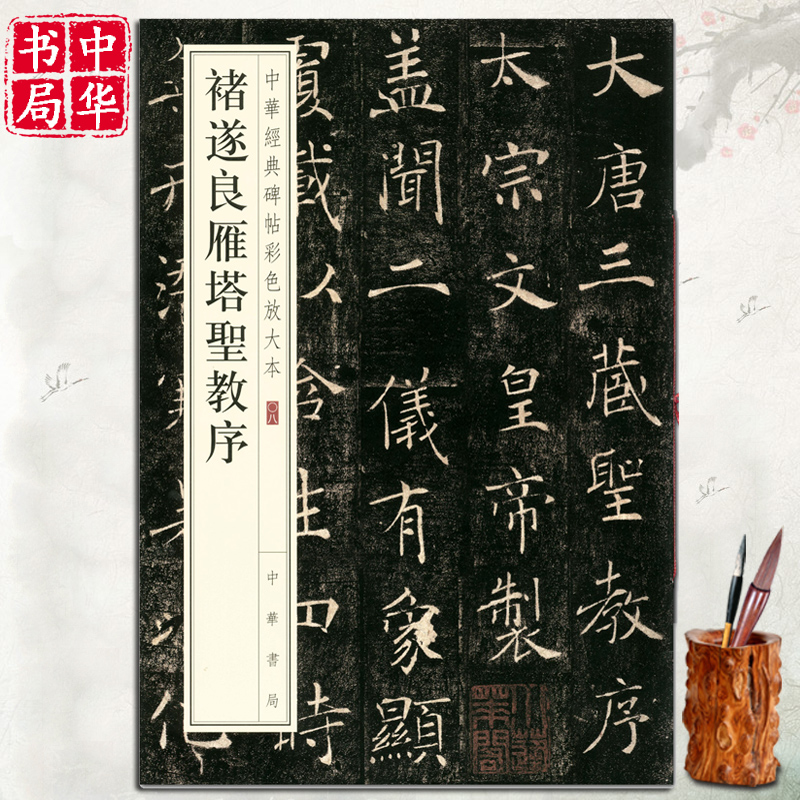 中华
书局
大唐三藏聖教序
太宗文皇帝製
盖聞二儀有象顯
載以含生四時
中華經典碑帖彩色放大本 〇八
中華書局
褚遂良雁塔聖教序